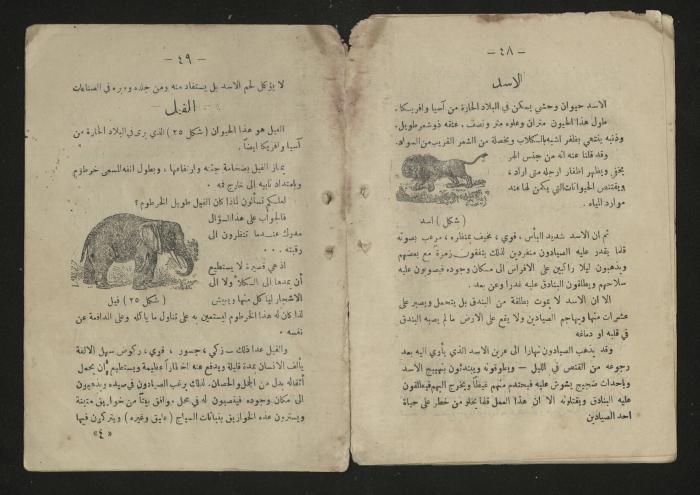 — ٤٨ —
الاسد
الاسد حيوان وحشي يسكن في البلاد الحارة من آسيا وافريكا.
طول هذا الحيون متران وعلوه متر ونصف. عنقه ذو شعر طويل.
وذنبه ينتهي بظفر اشبه بالكلاب وبخصلة من الشعر القريب من السواد.
وقد قلنا عنه انه من جنس الهر
يخفي ويظهر اظفار ارجله متى اراد،
ويقتنص الحيوانات التي يكمن لها عند
موارد المياه.
(شكل) اسد
ثم ان الاسد شديد البأس، قوي، مخيف بمنظره، مرعب بصوته
قلما يقدر عليه الصيادون منفردين لذلك يتفقون زمرة مع بعضهم
ويذهبون ليلا راكبين على الافراس الى مكان وجوده فيصوبون عليه
سلاحهم ويطلقون البنادق عليه غدرا وعن بعد.
الا ان الاسد لا يموت بطلقة من البندق بل يتحمل ويصبر على
عشرات منها ويهاجم الصيادين ولا يقع على الارض ما لم يصبه البندق
في قلبه او دماغه
وقد يذهب الصيادون نهارا الى عرين الاسد الذي يأوي اليه بعد
رجوعه من القنص في الليل — ويطوقونه ويبتدئون بتهييج الاسد
وباحداث ضجيج يشوش عليه فيحتدم منهم غيظا ويخرج اليهم فيطلقون
عليه البنادق ويقتلونه الا ان هذا العمل قلما يخلو من خطر على حياة
احد الصيادين
— ٤٩ —
لا يؤكل لحم الاسد بل يستفاد منه ومن جلده وبره في الصناعات
الفيل
الفيل هو هذا الحيوان (شكل ٢٥) الذي يرى في البلاد الحارة من
آسيا وافريكا ايضا.
يمتاز الفيل بضخامة جثته وارتفاعها، وبطول انفه المسمى خوطوم
وبامتداد نابيه الى خارج فمه.
لعلكم تسألون لماذا كان الفيل طويل الخرطوم؟
فالجواب على هذا السؤال
مدرك عندما تنظرون الى
رقبته ...
اذ هي قصيرة لا يستطيع
ان يمدها الى الكلاء ولا الى
الاشجار ليأكل منها ويعيش
(شكل ٢٥) فيل
لذا كان له هذا الخرطوم ليستعين به على تناول ما يأكله وعلى المدافعة عن
نفسه.
والفيل عدا ذلك — زكي، جسور، قوي، ركوض سهل الالفة
يألف الانسان بمدة قليلة ويدفع عنه اخطارا عظيمة ويستطيع ان يحمل
اثقاله بدل من الجمل والحصان. لذلك يرغب الصيادون في صيده ويذهبون
الى مكان وجوده فينصبون له في محل موافق بيتا من خوازيق متينة
ويسترون هذه الخوازيق بنباتات السياج (عليق وغيره) ويتركون فيها
«٤»